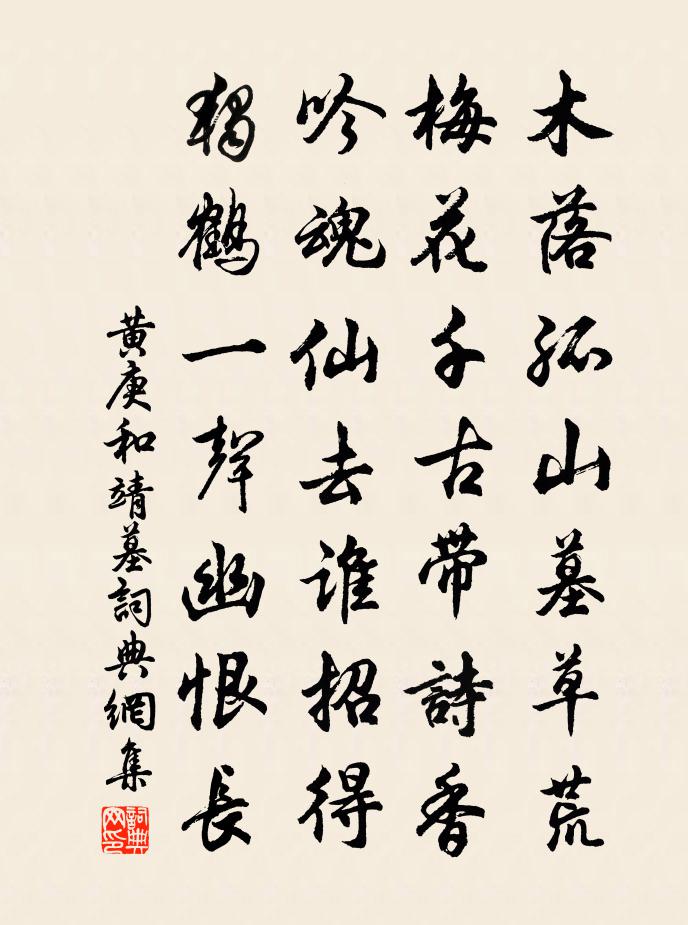 木落孤山墓草荒
梅花千古帶詩香
吟魂仙去誰招得
獨鶴一聲幽恨長
黄庚和靖墓詞典網集
詞典
网印